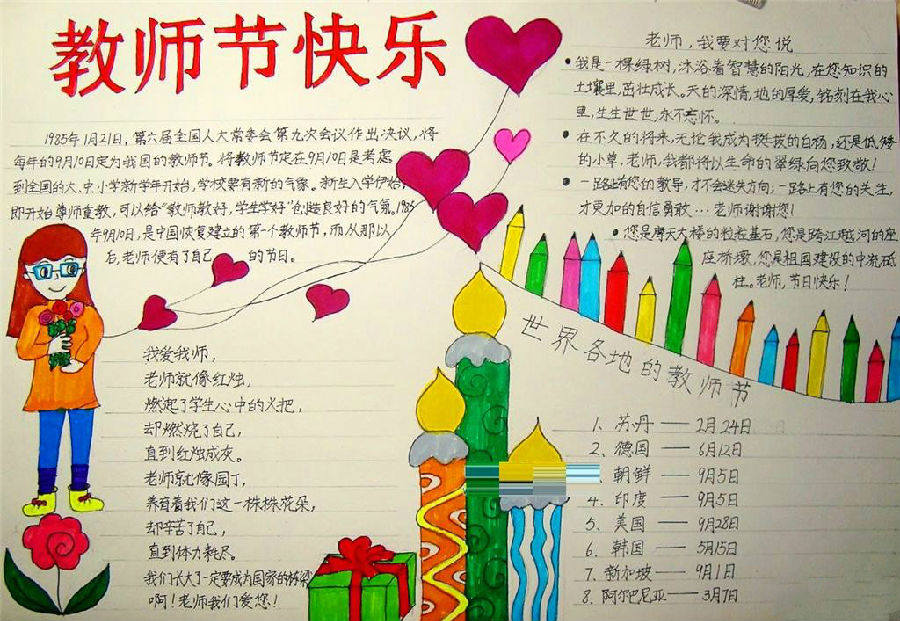 教师节快乐
1985年1月21日,第六届全国人大常委会第九次会议作出决议,将
每年的9月10日定为我国的教师节。将教师节定在9月10日是考虑
到全国的大、中小学新学年开始,学校要有新的气象。新生入学伊始,
即开始尊师重教,可以给“教师教好,学生学好”创造良好的气氛。1985
年9月10日,是中国恢复建立的第一个教师节,而从那以
后,老师便有了自己的节日。
老师,我要对您说
我是一棵绿树,沐浴着智慧的阳光,在您知识的
土壤里,茁壮成长。天的深情,地的厚爱,铭刻在我心
里,生生世世,永不忘怀。
在不久的将来,无论我成为挺拔的白杨,还是低矮
的小草,老师,我都将以生命的翠绿向您致敬!
一路上有您的教导,才不会迷失方向;一路上有您的关注,
才更加的自信勇敢…老师谢谢您!
您是摩天大楼的粒粒基石,您是跨江越河的座
座桥墩,您是祖国建设的中流砥
柱。老师,节日快乐!
我爱我师,
老师就像红烛,
燃起了学生心中的火把,
却燃烧了自己,
直到红烛成灰。
老师就像园丁,
养育着我们这一株株花朵,
却辛苦了自己,
直到体力耗尽。
我们长大了一定要成为国家的栋梁
啊!老师我们爱您!
世界各地的教师节
1、苏丹——2月24日
2、德国——6月12日
、朝鲜——9月5日
4、印度——9月5日
5、美国——9月28日
6、韩国——5月15日
7、新加坡——9月1日
8、阿尔巴尼亚——3月7日